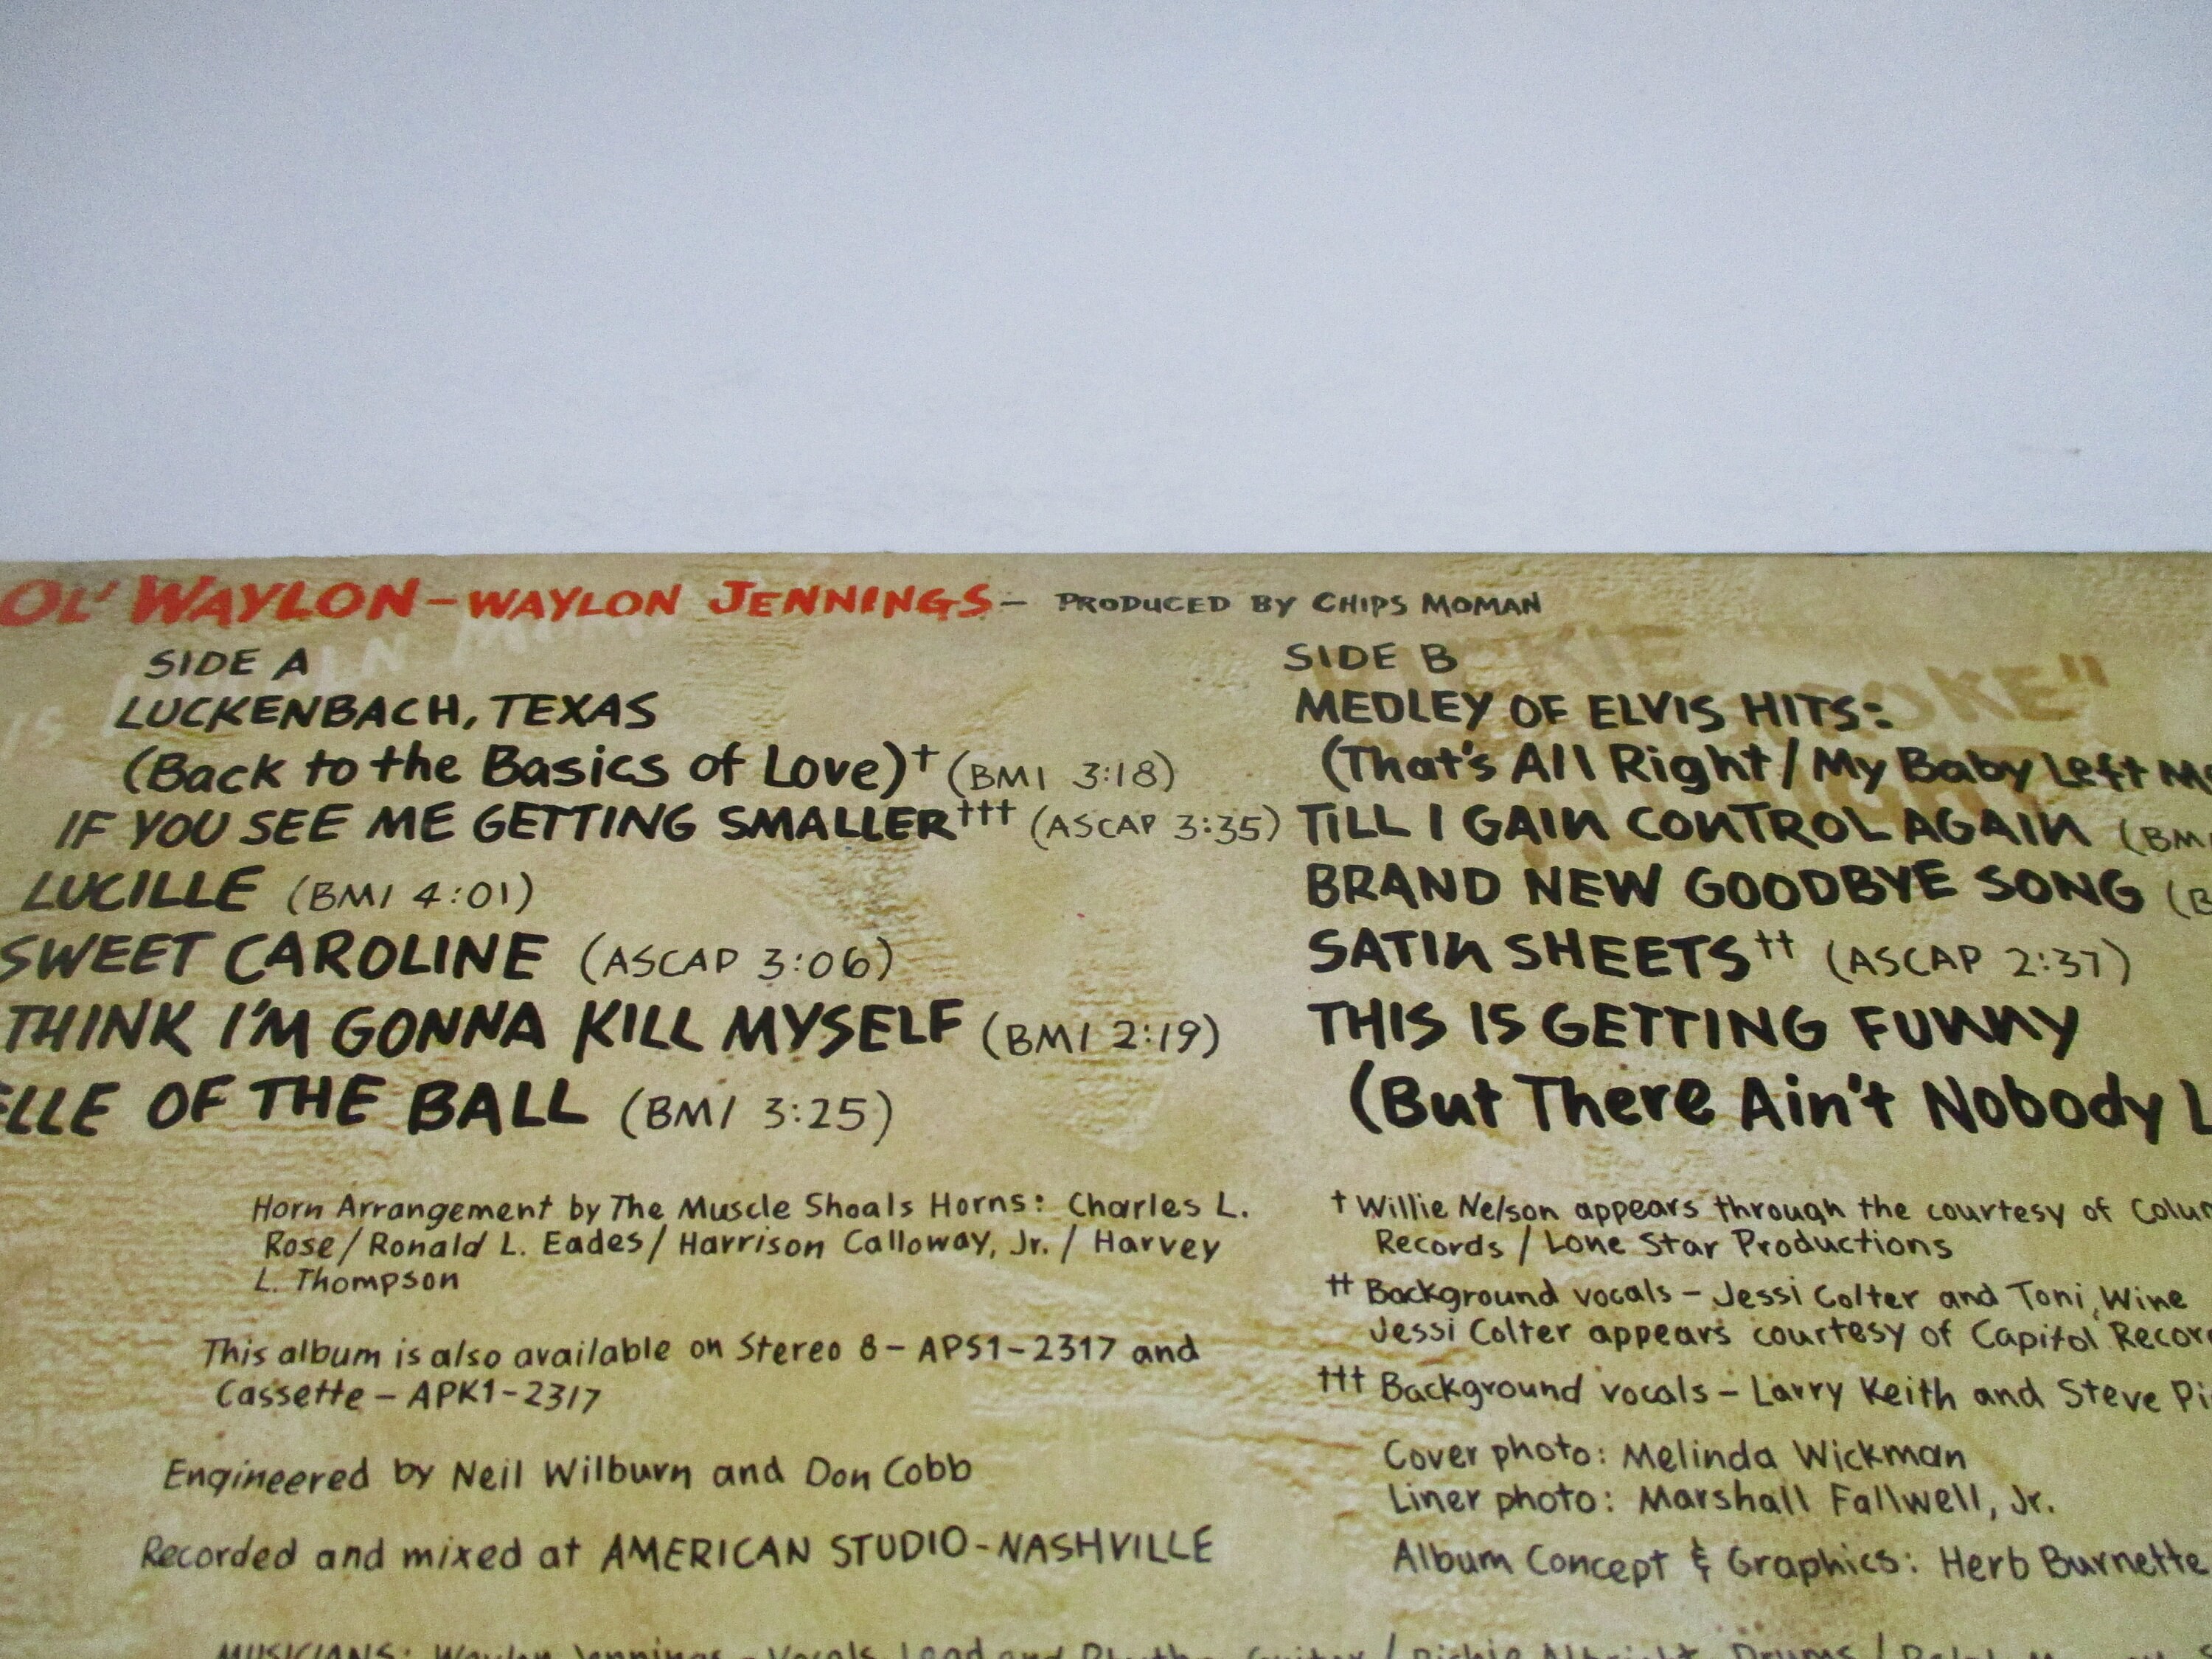 OL' WAYLON - WAYLON JENNINGS - PRODUCED BY CHIPS MOMAN
SIDE A
LUCKENBACH, TEXAS
(Back to the Basics of Love)† (BMI 3:18)
IF YOU SEE ME GETTING SMALLER††† (ASCAP 3:35)
LUCILLE (BMI 4:01)
SWEET CAROLINE (ASCAP 3:06)
THINK I'M GONNA KILL MYSELF (BMI 2:19)
ELLE OF THE BALL (BMI 3:25)
Horn Arrangement by The Muscle Shoals Horns: Charles L.
Rose / Ronald L. Eades / Harrison Calloway, Jr. / Harvey
L. Thompson
This album is also available on Stereo 8 - APS1-2317 and
Cassette - APK1-2317
Engineered by Neil Wilburn and Don Cobb
Recorded and mixed at AMERICAN STUDIO - NASHVILLE
SIDE B
MEDLEY OF ELVIS HITS:
(That's All Right / My Baby Left
TILL I GAIN CONTROL AGAIN (BM
BRAND NEW GOODBYE SONG (B
SATIN SHEETS†† (ASCAP 2:37)
THIS IS GETTING FUNNY
(But There Ain't Nobody L
† Willie Nelson appears through the courtesy of Colu
Records / Lone Star Productions
†† Background vocals - Jessi Colter and Toni Wine
Jessi Colter appears courtesy of Capitol Recor
††† Background vocals - Larry Keith and Steve Pi
Cover photo: Melinda Wickman
Liner photo: Marshall Fallwell, Jr.
Album Concept & Graphics: Herb Burnette
MUSICIANS: Waylon Jennings - Vocals, Lead and Rhythm Guitar / Richie Albright, Drums /